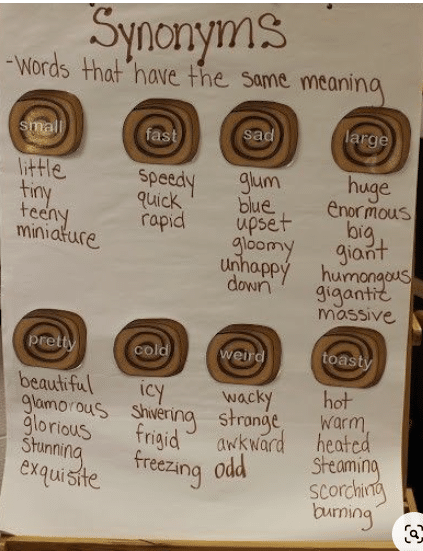 Synonyms
-Words that have the same meaning
small
little
tiny
teeny
miniature
fast
speedy
quick
rapid
sad
glum
blue
upset
gloomy
unhappy
down
large
huge
enormous
big
giant
humongous
gigantic
massive
pretty
beautiful
glamorous
glorious
stunning
exquisite
cold
icy
shivering
frigid
freezing
weird
wacky
strange
awkward
odd
toasty
hot
warm
heated
steaming
scorching
burning